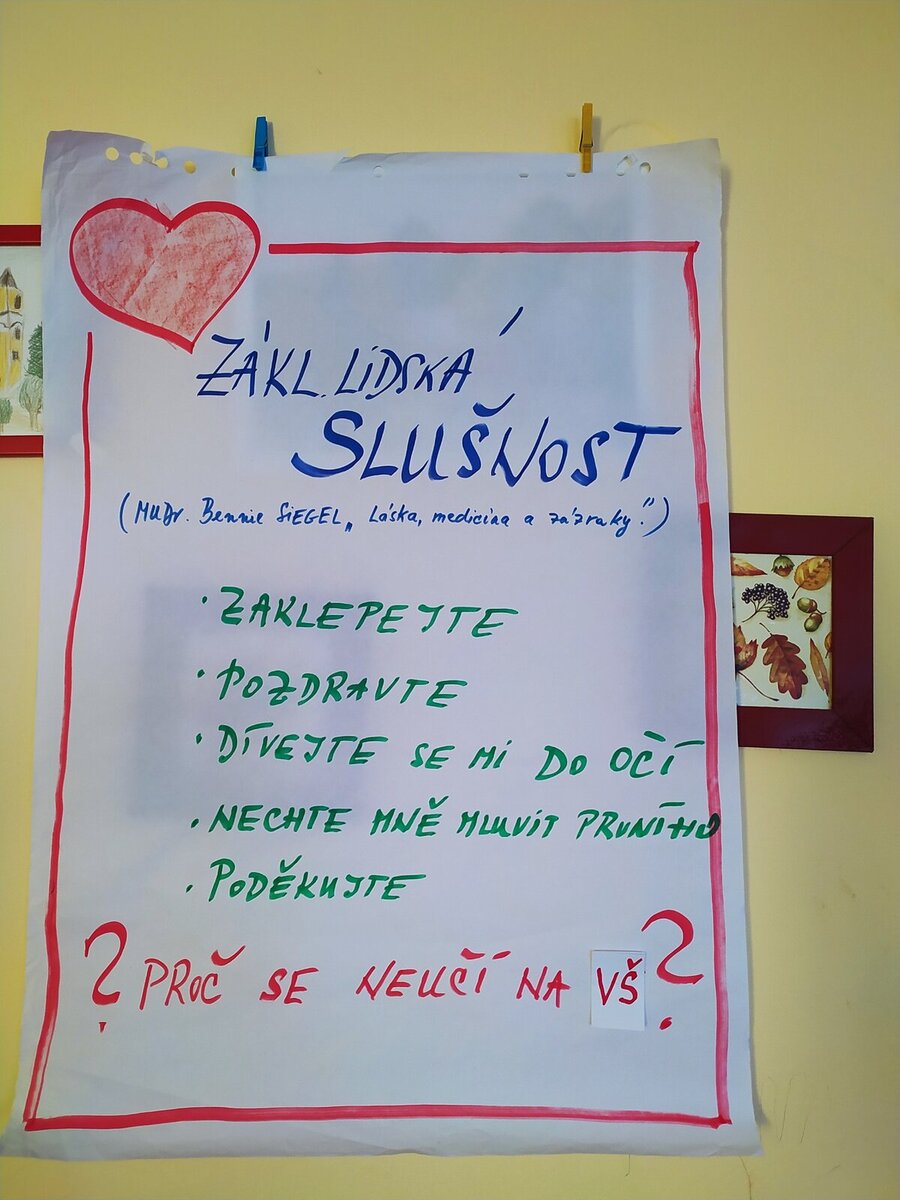 ZÁKL. LIDSKÁ
SLUŠNOST
(MUDr. Bennie SIEGEL „Láska, medicina a zázraky.")
· ZAKLEPEJTE
· POZDRAVTE
· DÍVEJTE SE MI DO OČÍ
· NECHTE MNĚ MLUVIT PRVNÍHO
· PODĚKUJTE
? PROČ SE NEUČÍ NA VŠ ?